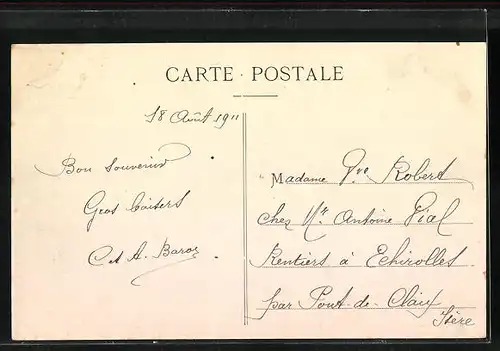 CARTE POSTALE
18 Août 1911
Bon Souvenir
Gros baisers
C et A. Baroz
Madame Vve Robert
chez Mr Antoine Vial
Rentiers à Echirolles
par Pont-de-Claix
Isère